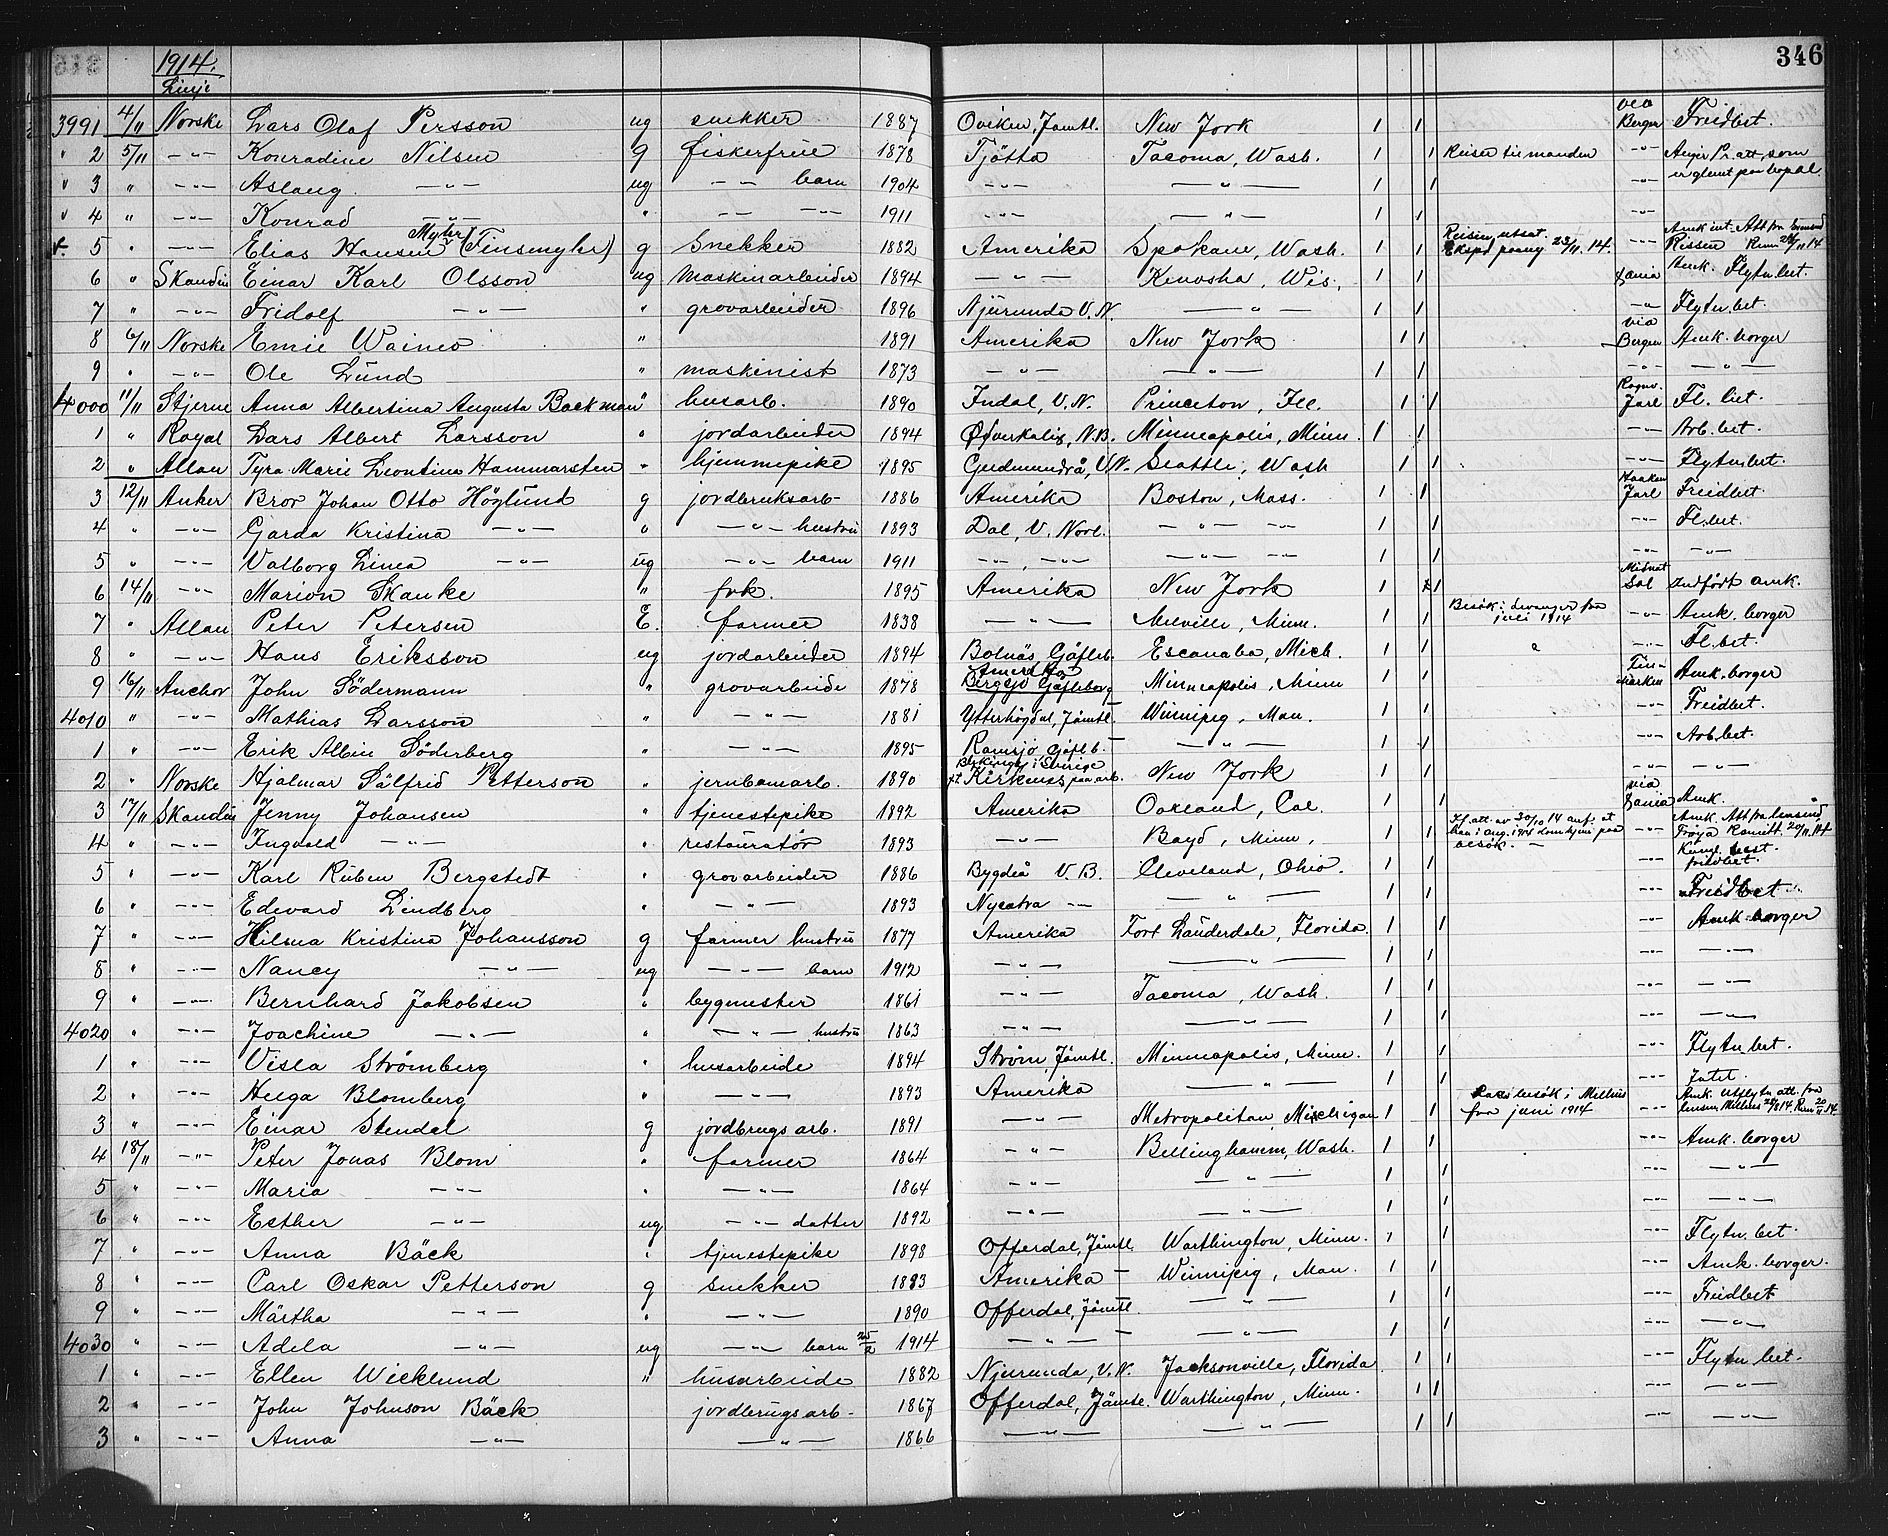 346
1914.
Linje
3991 4/11 Norske Lars Olaf Persson ug snekker 1887 Oviken, Jämtl. New York 1 1 via Bergen Freidbet.
" 2 5/11 —"— Konradine Nilsen g fiskerfrue 1878 Tjötta Tacoma, Wash. 1 1 Reiser til manden —"— Angir Pr. att, som er glemt paa bopæl
" 3 " —"— Aslaug —"— ug —"— barn 1904 —"— —"— 1 1 —"—
" 4 " —"— Konrad —"— " —"— —"— 1911 —"— —"— 1 1 —"—
5 " —"— Elias Hansen Myhr (Finsmyhr) g Snekker 1882 Amerika Spokane, Wash. 1 1 Reisen utsat. Eksp. paany 23/11. 14. —"—
6 " Skandin Einar Karl Olsson ug maskinarbeider 1894 —"— Kenosha, Wis. 1 1 Flytn. bet.
7 " —"— Fridolf —"— " grovarbeider 1896 Njurunda V. N. —"— 1 1 —"— Flytn. bet.
8 6/11 Norske Emie Wainio " 1891 Amerika New York 1 1 via Bergen Amk. borger
9 " —"— Ole Lund " maskinist 1873 —"— —"— 1 1 —"— —"—
4000 11/11 Stjerne Anna Albertina Augusta Backman " husarb. 1890 Indal, V. N. Princeton, Ill. 1 1 Ragnv. Jarl Fl. bet.
1 " Royal Lars Albert Larsson " jordarbeider 1894 Øfverkalix, N.B. Minneapolis, Minn. 1 1 —"— Arb. bet.
2 " Allan Tyra Marie Leontina Hammarsten " hjemmepike 1895 Gudmundrå, V.N. Seattle, Wash 1 1 —"— Flytn. bet.
3 12/11 Anker Bror Johan Otto Höglund g jordbruksarb- 1886 Amerika Boston, Mass. 1 1 Haakon Jarl Freidbet
4 " —"— Gerda Kristina —"— " —"— hustru 1893 Dal, V. Norl. —"— —"— 1 1 —"— Fl. bet.
5 " —"— Valborg Linea —"— ug —"— barn 1911 —"— —"— —"— 1 1 —"— —"—
6 14/11 —"— Marion Skanke " frk. 1895 Amerika New York 1 1 Midnat Sol Indfødt amk.
7 " Allan Peter Petersen E. farmer 1838 —"— Melville, Minn. 1 1 Besøk i Levanger fra juli 1914 —"— Amk. borger
8 " —"— Hans Eriksson ug jordarbeider 1894 Bolnäs Gäfleb. Escanaba, Mich. 1 1 —"— Fl. bet
9 16/11 Anchor John Södermann " grovarbeide 1878 Amerika Bergsjö Gäfleborg Minneapolis, Minn 1 1 Fin-marken Amk. borger
4010 " —"— Mathias Larsson " —"— 1881 Ytterhögdal, Jämtl Winnipeg, Man. 1 1 —"— Freidbet.
1 " —"— Erik Albin Söderberg " —"— 1895 Ramsjö Gäfleb. —"— 1 1 —"— Arb. bet.
2 " Norske Hjalmar Sälfrid Petterson " jernbanearb. 1890 Kirkenes paa arb. New York 1 1 —"— —"—
3 17/11 Skandin Jenny Johansen " tjenestepike 1892 Amerika Oakland, Cal. 1 1 via Amk.
4 " —"— Ingvald —"— " restauratør 1893 —"— Boyd, Minn. 1 1 Kf. att. av 30/10 14 anf. at han i aug. 1914 kom hjem paa besøk. —"—
5 " —"— Karl Ruben Bergstedt " grovarbeider 1886 Bygdeå V. B. Cleveland, Ohio. 1 1 —"— freidbet.
6 " —"— Edward Lindberg " —"— 1893 Nysätra —"— —"— 1 1 —"— Freidbet
7 " —"— Hilma Kristina Johansson g farmer hustru 1877 Amerika Fort Lauderdale, Florida. 1 1 —"— Amk. borger
8 " —"— Nancy —"— ug —"— barn 1912 —"— —"— 1 1 —"— —"—
9 " —"— Bernhard Jakobsen " bygmester 1861 —"— Tacoma, Wash. 1 1 —"— —"—
4020 " —"— Joachine —"— " —"— hustru 1863 —"— —"— 1 1 —"— —"—
1 " —"— Visla Strömberg " husarbeide 1894 Ström, Jämtl. Minneapolis, Minn. 1 1 —"— Flytn. bet.
2 " —"— Helga Blomberg " —"— 1893 Amerika —"— 1 1 —"— Intet.
3 " —"— Einar Stendal g jordbrugsarb. 1891 —"— Metropolitan, Michigan 1 1 besøk i Melhus fra juni 1914 —"—
4 18/11 —"— Peter Jonas Blom " farmer 1864 —"— Bellinghamm, Wash. 1 1 —"— Amk. borger
5 " —"— Maria —"— " —"— 1864 —"— —"— 1 1 —"— —"—
6 " —"— Esther —"— ug —"— datter 1892 —"— —"— 1 1 —"— —"—
7 " —"— Anna Bäck " tjenestepike 1898 Offerdal, Jämtl. Warthington, Minn. 1 1 —"— Flytn. bet.
8 " —"— Carl Oskar Petterson g snekker 1883 Amerika Winnipeg, Man. 1 1 —"— Amk. borger.
9 " —"— Märtha —"— " —"— 1890 Offerdal, Jämtl. —"— 1 1 —"— Freidbet
4030 " —"— Adela —"— ug —"— barn 25/2 1914 —"— —"— 1 1 —"— —"—
1 " —"— Ellen Wicklund " husarbeide 1882 Njurunda, V. N. Jacksonville, Florida 1 1 —"— Flytn bet.
2 " —"— John Johnson Bäck jordbrugsarb- 1867 Offerdal, Jämtl. Warthington, Minn. 1 1 —"— —"—
3 " —"— Anna —"— —"— 1866 —"— —"— 1 1 —"— —"—